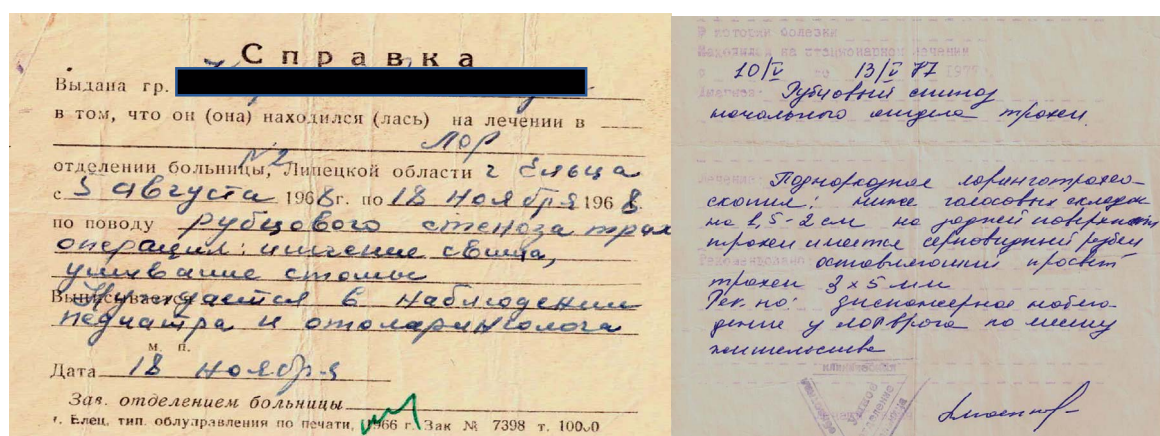 Справка
Выдана гр.
в том, что он (она) находился (лась) на лечении в
Лор
отделении больницы, №2 Липецкой области г Ельца
с 5 августа 1968 г. по 18 ноября 1968
по поводу рубцового стеноза трах
операции: иссечение свища,
ушивание стомы
Выписывается Нуждается в наблюдении
педиатра и отоларинголога
м. п.
Дата 18 ноября
Зав. отделением больницы
г. Елец, тип. облуправления по печати, 1966 г. Зак № 7398 т. 10000
истории болезни
Находился на стационарном лечении
с 10/V по 13/V 77 197
Диагноз: Рубцовый стеноз
начального отдела трахеи.
Лечение: Поднаркозная ларинготрахео-
скопия: ниже голосовых складок
на 1,5-2 см на задней поверхности
трахеи имеется серповидный рубец
Рекомендовано оставляющий просвет
трахеи 3х5 мм
Рек-но: диспансерное наблю-
дение у лор врача по месту
жительства